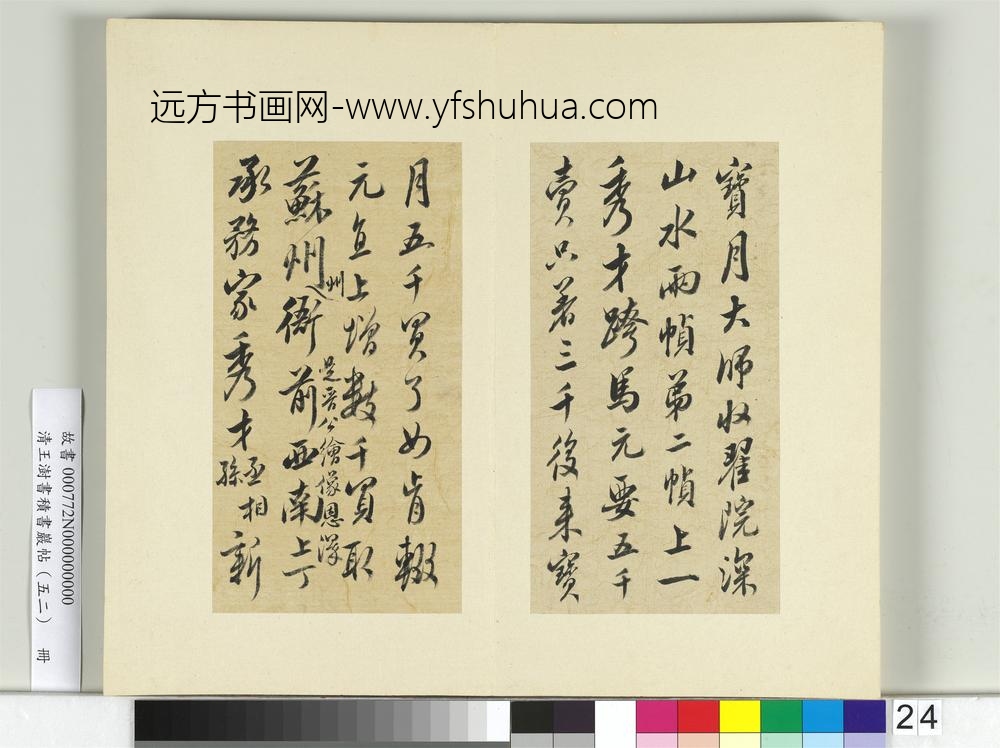 远方书画网-www.yfshuhua.com
寶月大師收翟院深
山水兩幀第二幀上一
秀才跨馬元要五千
賣只著三千後來寶
月五千買了如肯輟
元直上增數千買取
蘇州衙前西南上丁
州
是晉公繪像恩澤
承務家秀才
丞相
孫
新
故書 000772N000000000
清王澍書積書巖帖(五二) 冊
24